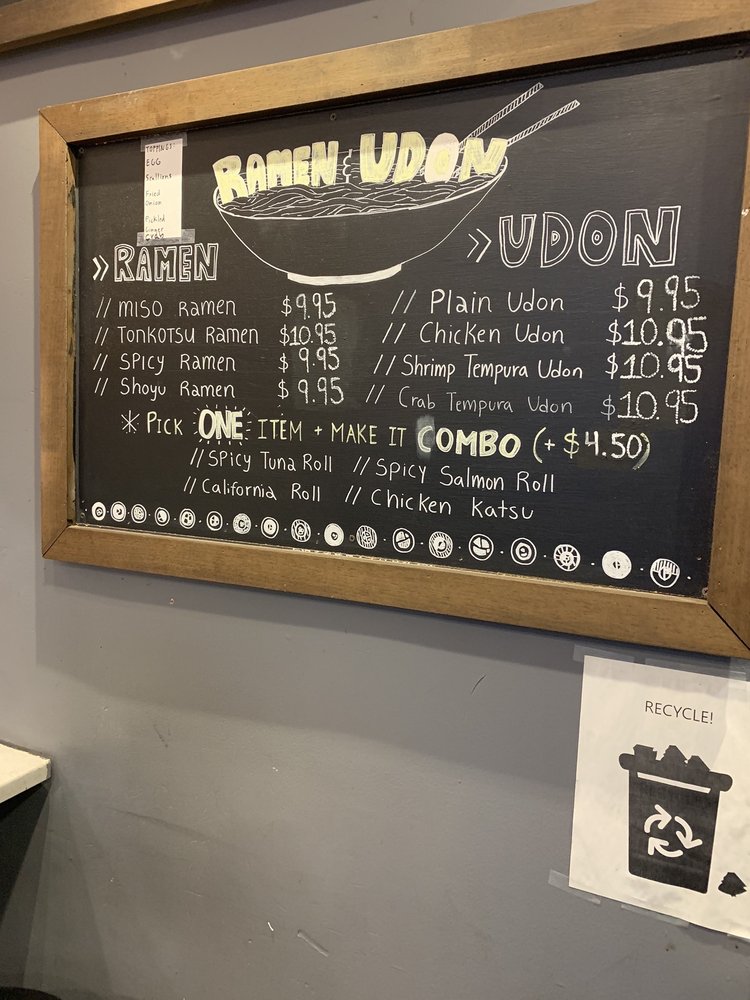 TOPPINGS:
EGG
Scallions
Fried
Onion
Pickled
Ginger
CRAB
RAMEN & UDON
» RAMEN
// MISO Ramen $9.95
// TONKOTSU Ramen $10.95
// SPICY Ramen $9.95
// Shoyu Ramen $9.95
» UDON
// Plain Udon $9.95
// Chicken Udon $10.95
// Shrimp Tempura Udon $10.95
// Crab Tempura Udon $10.95
* PICK ONE ITEM + MAKE IT COMBO (+ $4.50)
// SPICY Tuna Roll // SPICY Salmon Roll
// California Roll // Chicken Katsu
RECYCLE!